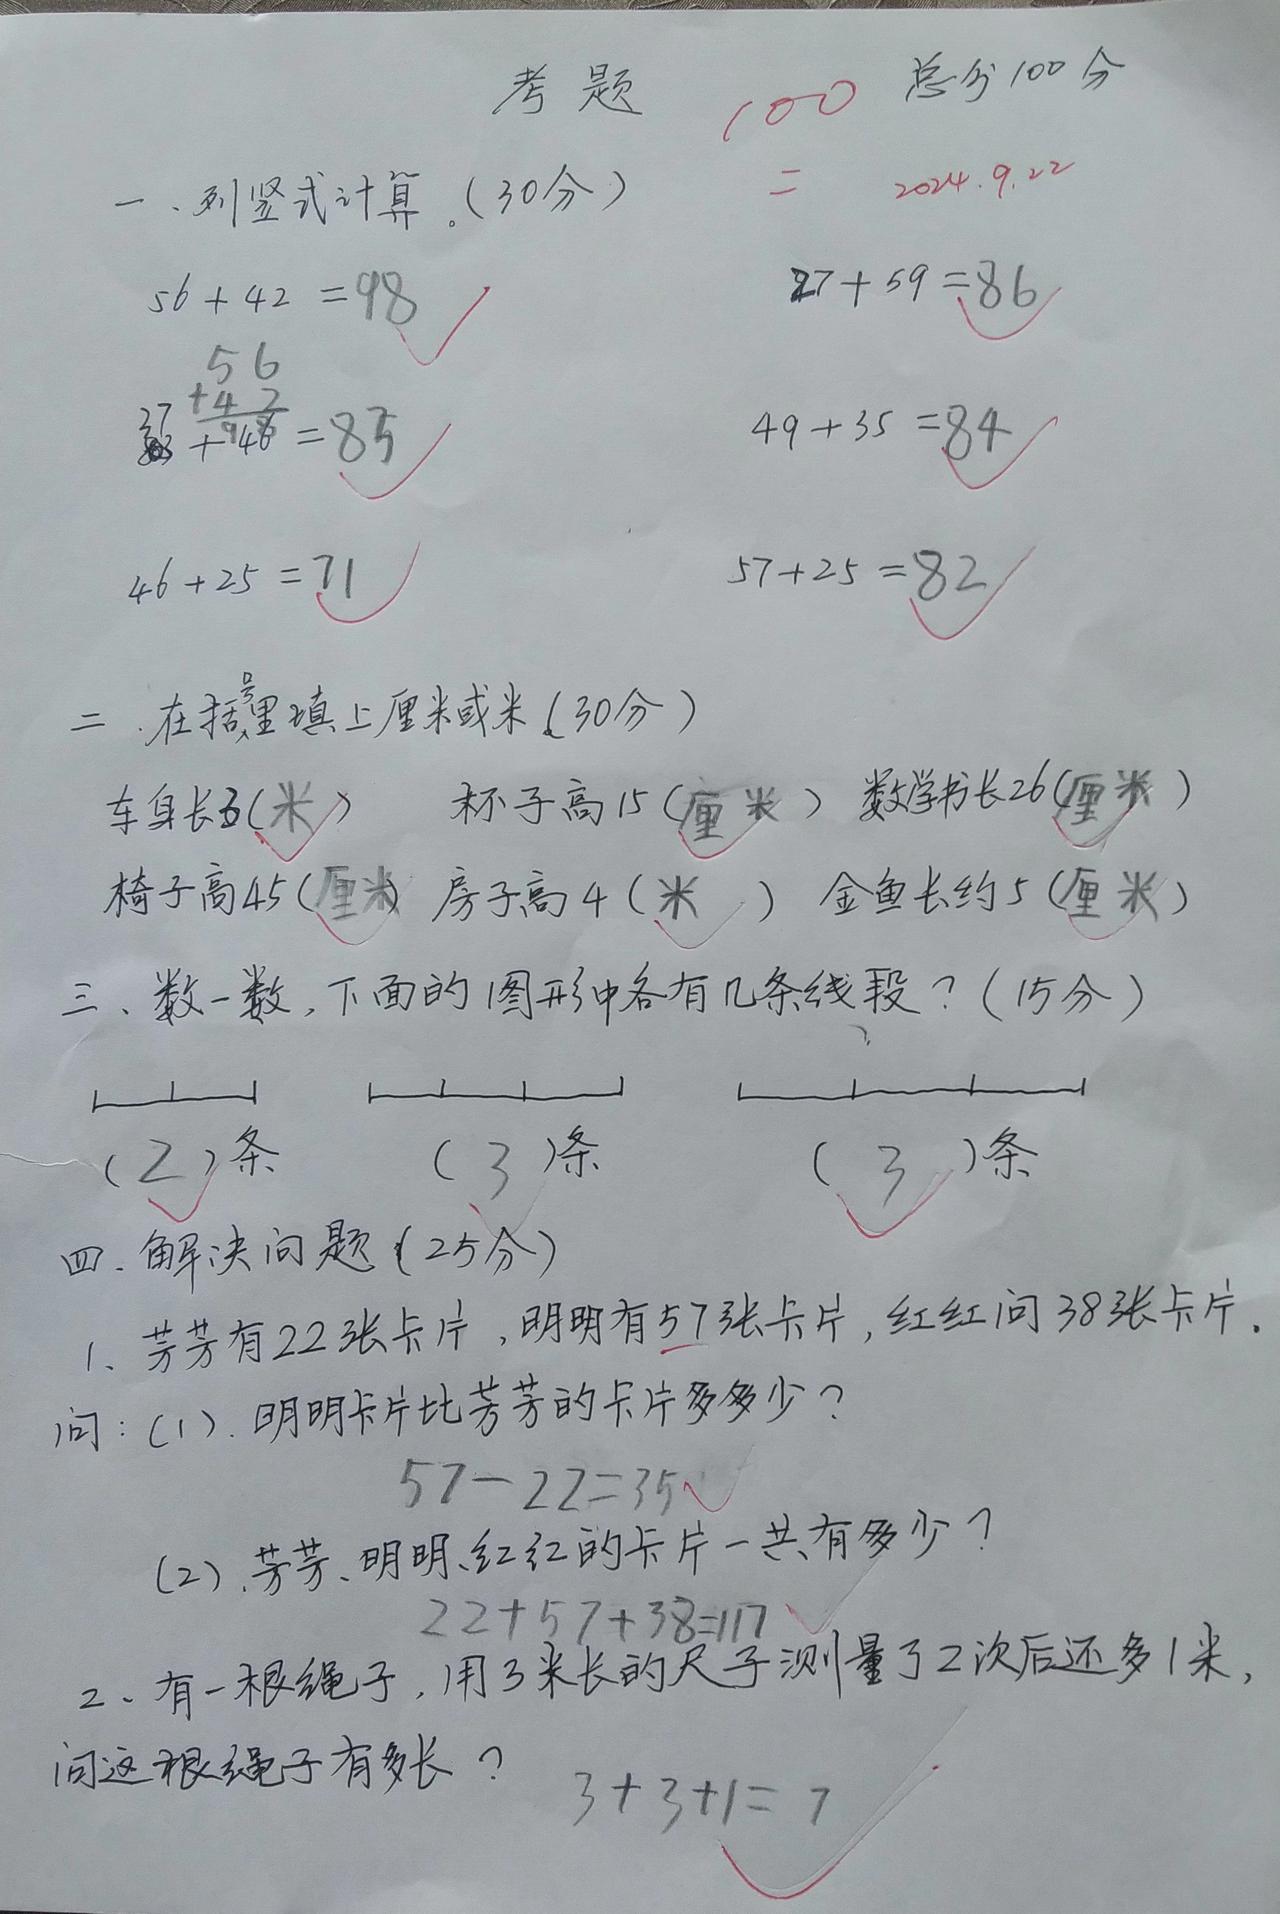 考题 100 总分100分
一、列竖式计算。(30分) 2024.9.22
56+42=98 27+59=86
56
+42
98
37+48=85 49+35=84
46+25=71 57+25=82
二、在括号里填上厘米或米(30分)
车身长3(米) 杯子高15(厘米) 数学书长26(厘米)
椅子高45(厘米) 房子高4(米) 金鱼长约5(厘米)
三、数一数,下面的图形中各有几条线段?(15分)
(2)条 (3)条 (3)条
四.解决问题(25分)
1、芳芳有22张卡片,明明有57张卡片,红红问38张卡片.
问:(1).明明卡片比芳芳的卡片多多少?
57-22=35
(2).芳芳、明明、红红的卡片一共有多少?
22+57+38=117
2、有一根绳子,用3米长的尺子测量了2次后还多1米,
问这根绳子有多长?
3+3+1=7